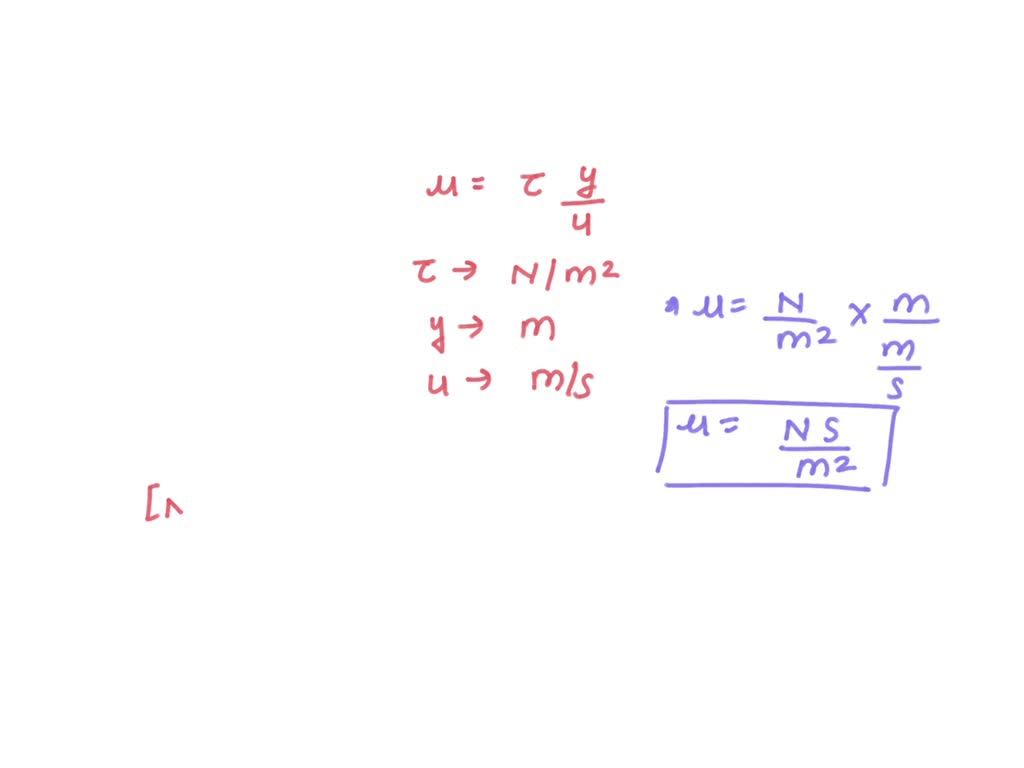 μ = τ y/u
τ → N/m²
y → m
u → m/s
μ = N/m² × m/(m/s)
μ = N S/m²
[